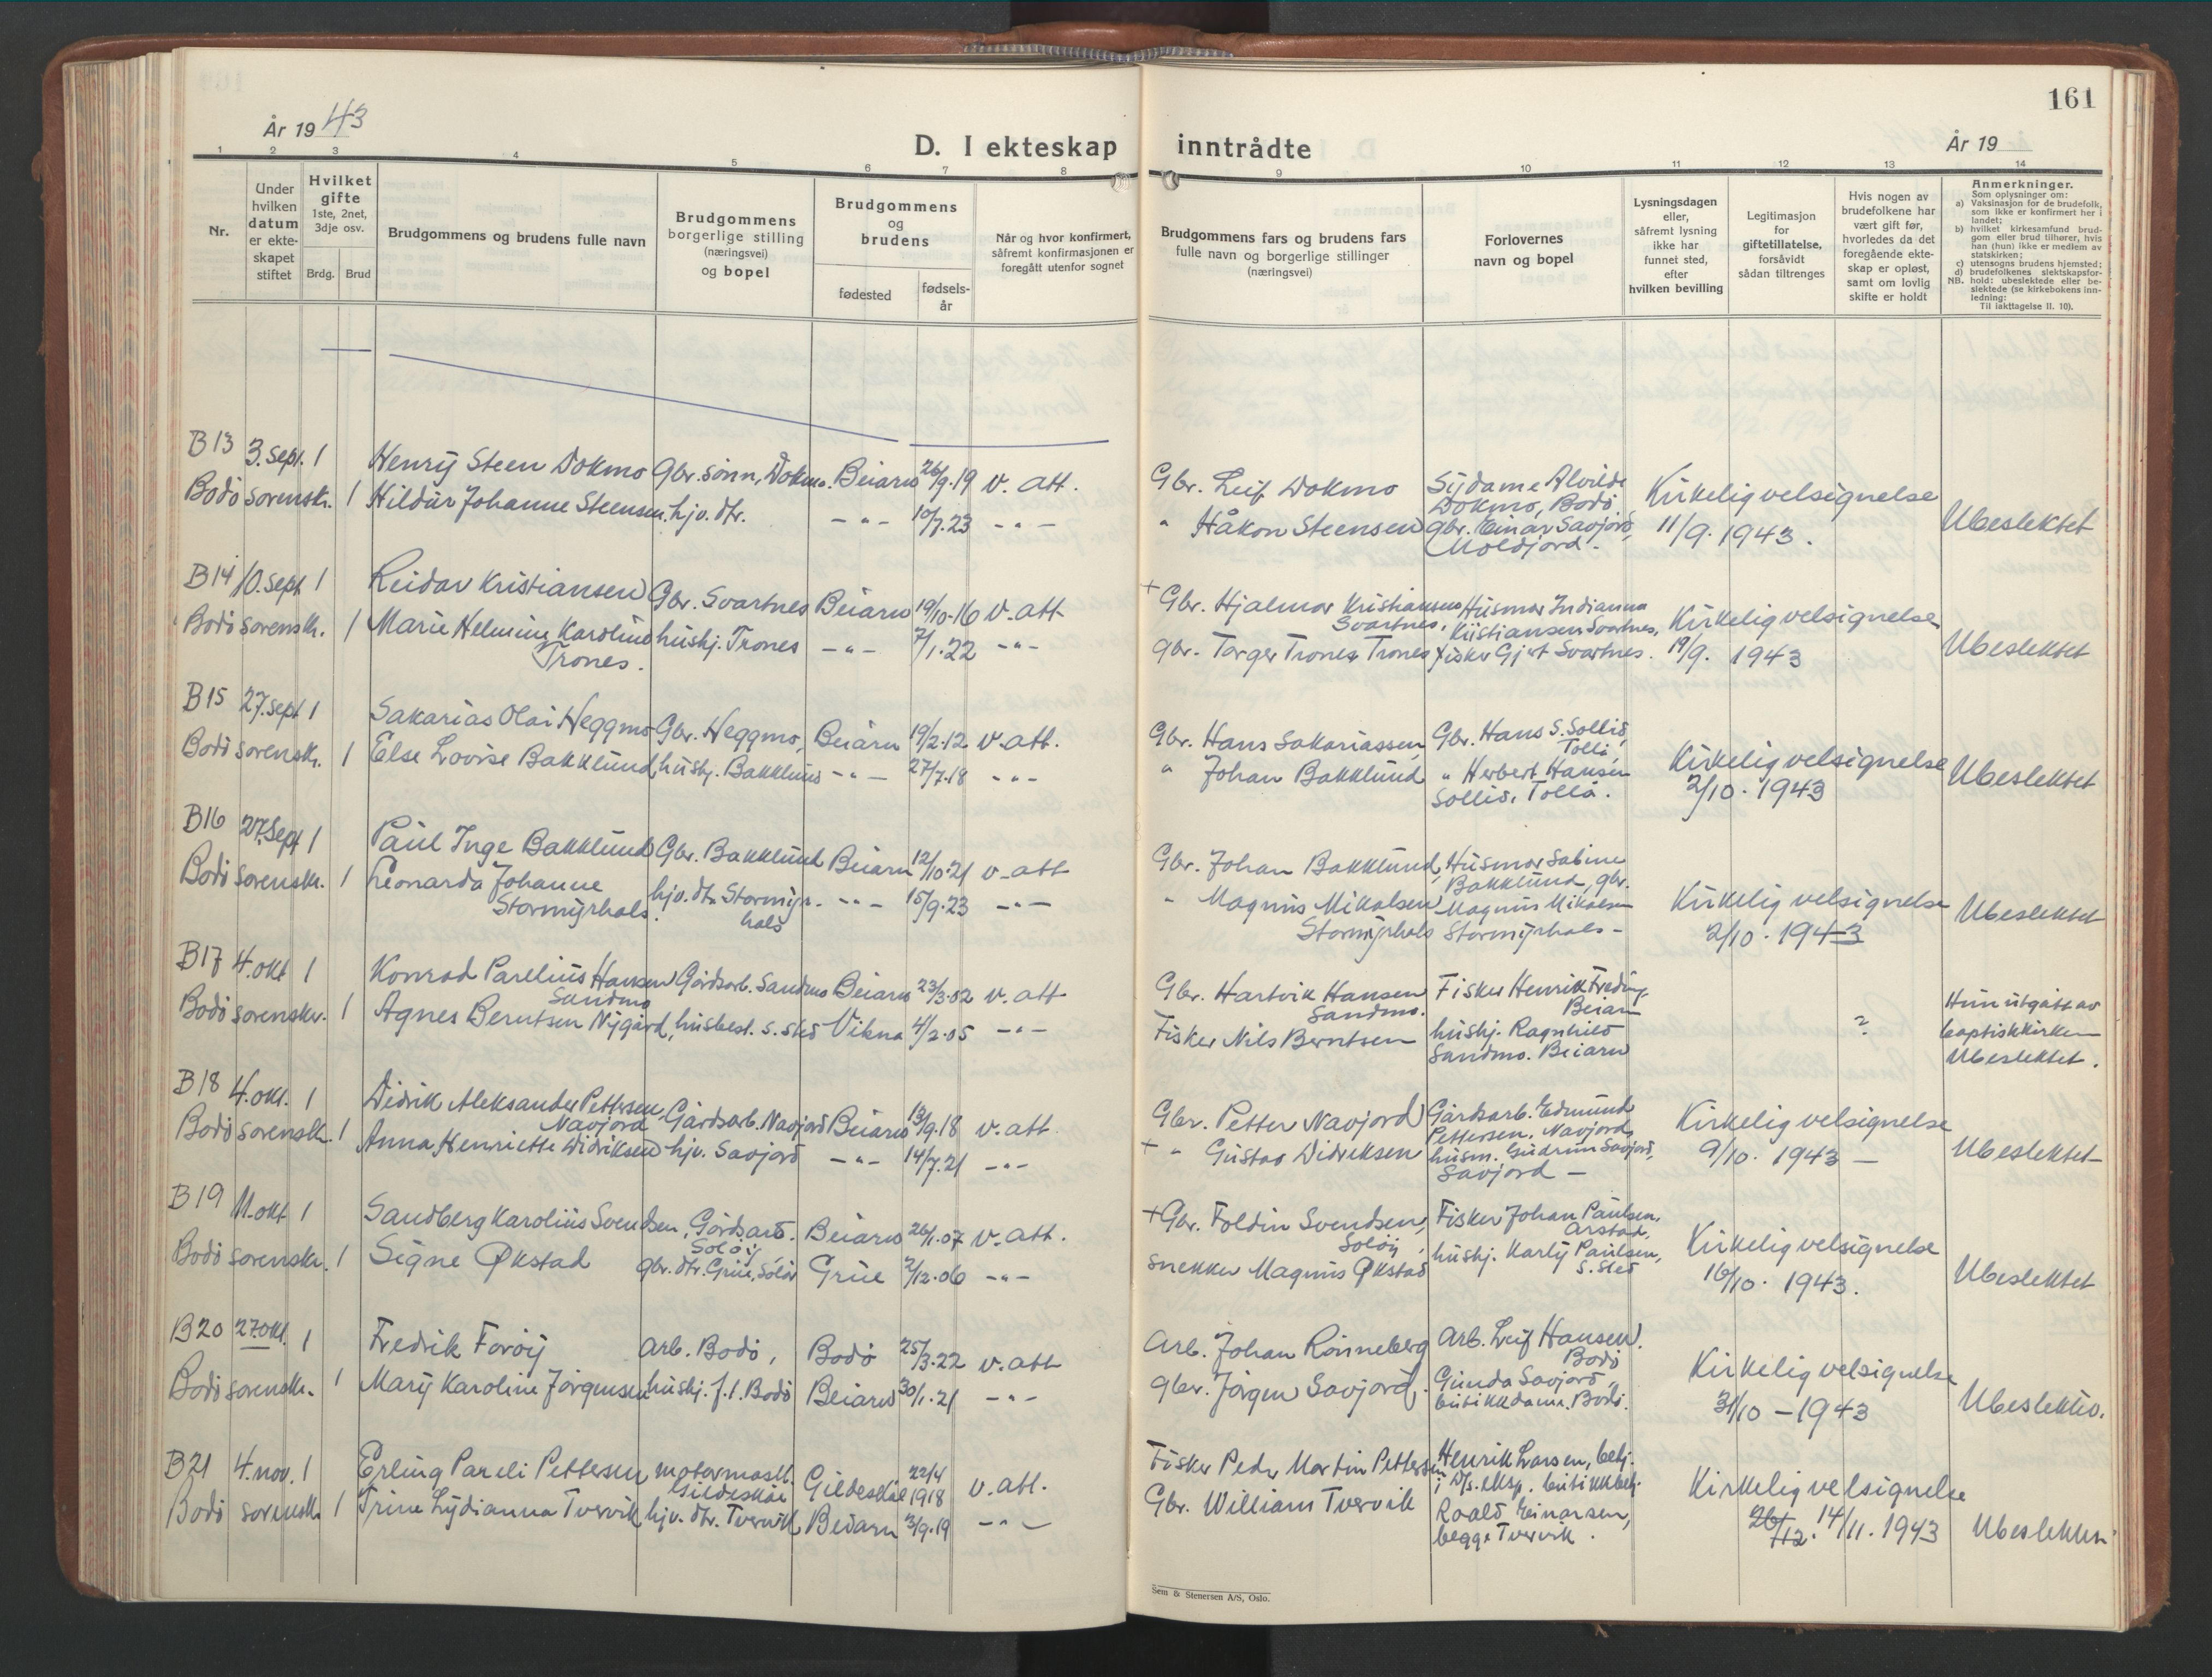 161
År 1943
D. I ekteskap inntrådte
År 19
1 2 3 4 5 6 7 8 9 10 11 12 13 14
Nr.
Under hvilken datum er ekteskapet stiftet
Hvilket gifte 1ste, 2net, 3dje osv.
Brdg. Brud
Brudgommens og brudens fulle navn
Brudgommens borgerlige stilling (næringsvei) og bopel
Brudgommens og brudens
fødested
fødselsår
Når og hvor konfirmert, såfremt konfirmasjonen er foregått utenfor sognet
Brudgommens fars og brudens fars fulle navn og borgerlige stillinger (næringsvei)
Forlovernes navn og bopel
Lysningsdagen eller, såfremt lysning ikke har funnet sted, efter hvilken bevilling
Legitimasjon for giftetillatelse, forsåvidt sådan tiltrenges
Hvis nogen av brudefolkene har vært gift før, hvorledes da det foregående ekteskap er opløst, samt om lovlig skifte er holdt
Anmerkninger.
Som oplysninger om:
a) Vaksinasjon for de brudefolk, som ikke er konfirmert her i landet;
b) hvilket kirkesamfund brudgom eller brud tilhører, hvis han (hun) ikke er medlem av statskirken;
c) utensogns brudens hjemsted;
d) brudefolkenes slektskapsforhold: ubeslektede eller beslektede (se kirkebokens innledning:
NB.
Til iakttagelse II. 10).
B13 3. sept. 1 Henry Steen Dokmo Gbr. sønn, Dokmo. Beiarn 26/9.19 v. att. Gbr. Leif Dokmo Sydame Alvilde Dokmo, Bodø Kirkelig velsignelse
Bodø sorenskr. 1 Hildur Johanne Steensen, hjv. dtr. -"- 10/7.23 -"- " Håkon Steensen gbr. Einar Savjord, Moldjord. 11/9. 1943. Ubeslektet
B14 10. sept 1 Reidar Kristiansen Gbr. Svartnes Beiarn 19/10-16 v. att + Gbr. Hjalmar Kristiansen Svartnes, Husmor Indianna Kristiansen Svartnes, Kirkelig velsignelse
Bodø sorenskr. 1 Marie Helmine Karoline Trones. hushj. Trones -"- 7/1.22 -"- gbr. Torger Trones Trones fisker Gjert Svartnes. 19/9. 1943 Ubeslektet
B15 27. sept 1 Sakarias Olai Heggmo Gbr. Heggmo, Beiarn 19/2.12 v. att. Gbr. Hans Sakariassen, Gbr. Hans S. Sollid, Tollå, Kirkelig velsignelse
Bodø sorenskr. 1 Else Lovise Bakklund, hushj. Bakklund -"- 27/7.18 -"- " Johan Bakklund " Herbert Hansen Sollid, Tollå. 2/10. 1943 Ubeslektet
B16 27. Sept 1 Paul Inge Bakklund Gbr. Bakklund Beiarn 12/10.21 v. att Gbr. Johan Bakklund, Husmor Sabine Bakklund, gbr.
Bodø sorenskr. 1 Leonarda Johanne Stormyrhals. hjv. dtr. Stormyrhals -"- 15/9.23 -"- " Magnus Mikalsen Stormyrhals Magnus Mikalsen Stormyrhals - Kirkelig velsignelse 2/10. 1943 Ubeslektet
B17 4. okt 1 Konrad Parelius Hansen Sandmo Gårdsarb. Sandmo Beiarn 23/3.02 v. att Gbr. Hartvik Hansen Sandmo. Fisker Henrik Beiarn Hun utgått av
Bodø sorenskr. 1 Agnes Berntsen Nygård, husbest. s. sted Vikna 4/2.05 -"- Fisker Nils Berntsen hushj. Ragnhild Sandmo. Beiarn ? baptistkirken Ubeslektet.
B18 4. okt. 1 Didrik Aleksander Pettersen, Navjord Gårdsarb. Navjord Beiarn 13/9.18 v. att Gbr. Petter Navjord Gårdsarb. Edmund Pettersen, Navjord, Kirkelig velsignelse
Bodø sorenskr. 1 Anna Henriette Didriksen hjv. Savjord -"- 14/7.21 -"- + " Gustav Didriksen husm. Gudrun Savjord, Savjord - 9/10. 1943 - Ubeslektet
B19 11. okt 1 Sandberg Karolius Svendsen, Gårdsarb. Soløy Beiarn 26/1.07 v. att. + Gbr. Foldin Svendsen, Soløy, Fisker Johan Paulsen, Arstad, Kirkelig velsignelse
Bodø sorenskr. 1 Signe Økstad gbr. dtr. Grue, Solør Grue 2/12.06 -"- snekker Magnus Økstad hushj. Karly Paulsen, s. sted 16/10. 1943. Ubeslektet
B20 27. okt. 1 Fredrik Forøy Arb. Bodø, Bodø 25/3.22 v. att Arb. Johan Rønneberg Arb. Leif Hansen. Bodø Kirkelig velsignelse
Bodø sorenskr. 1 Mary Karoline Jørgensen hushj. f. t. Bodø Beiarn 30/1.21 -"- gbr. Jørgen Savjord, Gunda Savjord, butikkdame, Bodø. 31/10 - 1943 Ubeslektet.
B21 4. nov. 1 Erling Pareli Pettersen motormask. Gildeskål Gildeskål 22/4 1918 v. att. Fisker Peder Martin Pettersen Henrik Larsen, betj. i D/s. eksp. butikkbetj. Kirkelig velsignelse
Bodø sorenskr. 1 Trine Lydianna Tvervik hjv. dtr. Tvervik Beiarn 3/9.19 -"- Gbr. William Tvervik Roald Einarsen, begge Tvervik. 26/12. 14/11. 1943 Ubeslektet
Sem & Stenersen A/S, Oslo.